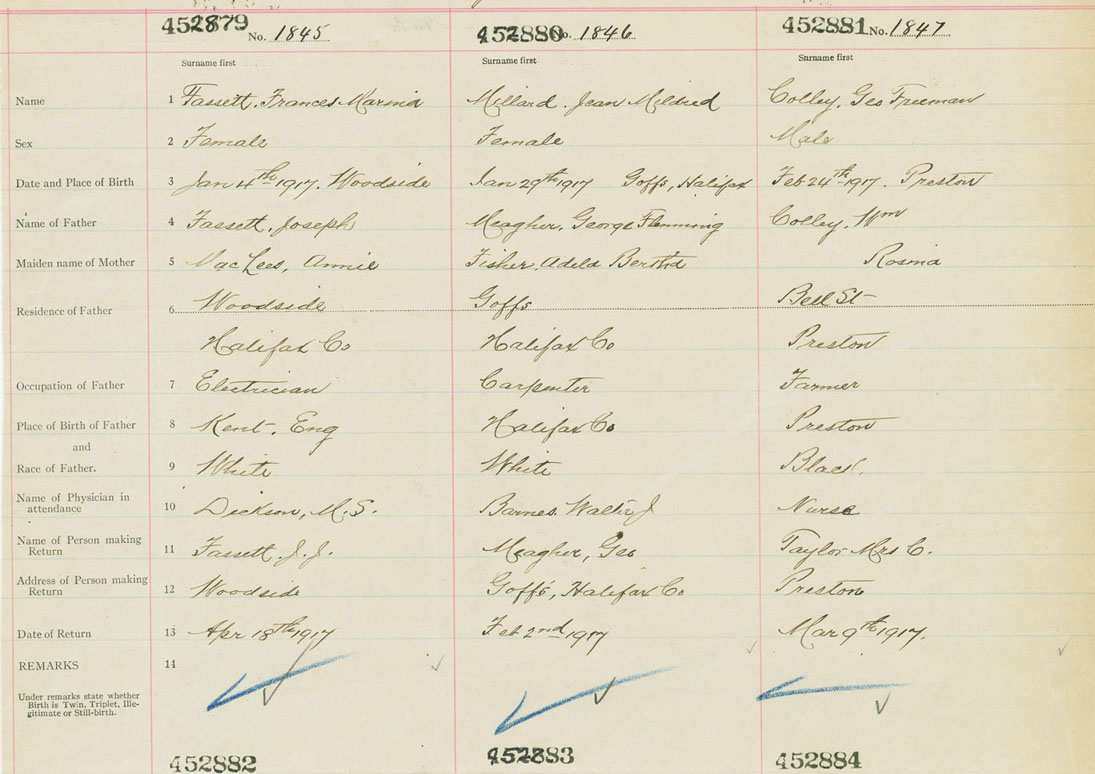 452879 No. 1845 452880 No. 1846 452881 No. 1847
Surname first Surname first Surname first
Name 1 Fassett, Frances Marina Millard, Jean Mildred Colley, Geo Freeman
Sex 2 Female Female Male
Date and Place of Birth 3 Jan 4th 1917. Woodside Jan 29th 1917 Goffs, Halifax Feb 24th 1917. Preston
Name of Father 4 Fassett, Joseph Meagher, George Flemming Colley, Wm
Maiden name of Mother 5 Annie Fisher, Adela Bertha Rosina
Residence of Father 6 Woodside Goffs Bell St
Halifax Co Halifax Co Preston
Occupation of Father 7 Electrician Carpenter Farmer
Place of Birth of Father 8 Kent, Eng Halifax Co Preston
and
Race of Father. 9 White White Black.
Name of Physician in
attendance 10 Dickson, M.S. Barnes, Walter J Nurse
Name of Person making
Return 11 Fassett, J.J. Meagher, Geo Taylor Mrs C.
Address of Person making
Return 12 Woodside Goffs, Halifax Co Preston
Date of Return 13 Apr 18th 1917 Feb 2nd 1917 Mar 9th 1917.
REMARKS 11
Under remarks state whether
Birth is Twin, Triplet, Ille-
gitimate or Still-birth.
452882 452883 452884